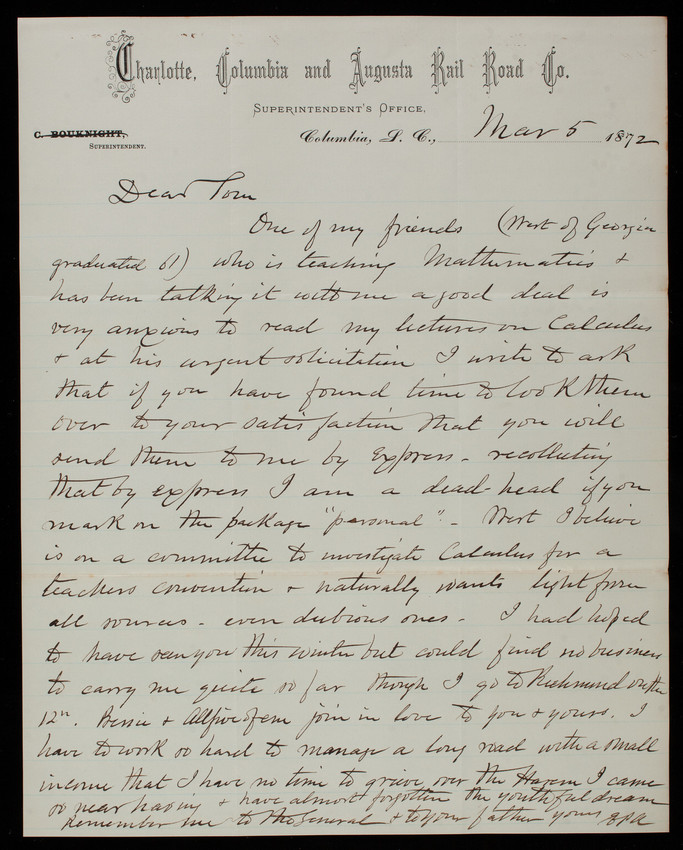 Charlotte, Columbia and Augusta Rail Road Co.
SUPERINTENDENT'S OFFICE,
C. BOUKNIGHT,
SUPERINTENDENT.
Columbia, S. C., Mar 5 1872
Dear Tom
One of my friends (West of Georgia
graduated 61) who is teaching Mathematics &
has been talking it with me a good deal is
very anxious to read my lectures on Calculus
& at his urgent solicitation I write to ask
that if you have found time to look them
over to your satisfaction that you will
send them to me by Express - recollecting
that by express I am a dead-head if you
mark on the package "personal". - West I believe
is on a committee to investigate Calculus for a
teachers convention & naturally wants light from
all sources - even dubious ones - I had hoped
to have seen you this winter but could find no business
to carry me quite so far though I go to Richmond on the
12th. Bessie & All five of em join in love to you & yours. I
have to work so hard to manage a long road with a small
income that I have no time to grieve over the Harem I came
so near having & have almost forgotten the youthful dream
Remember me to the General & to your father yours EPA